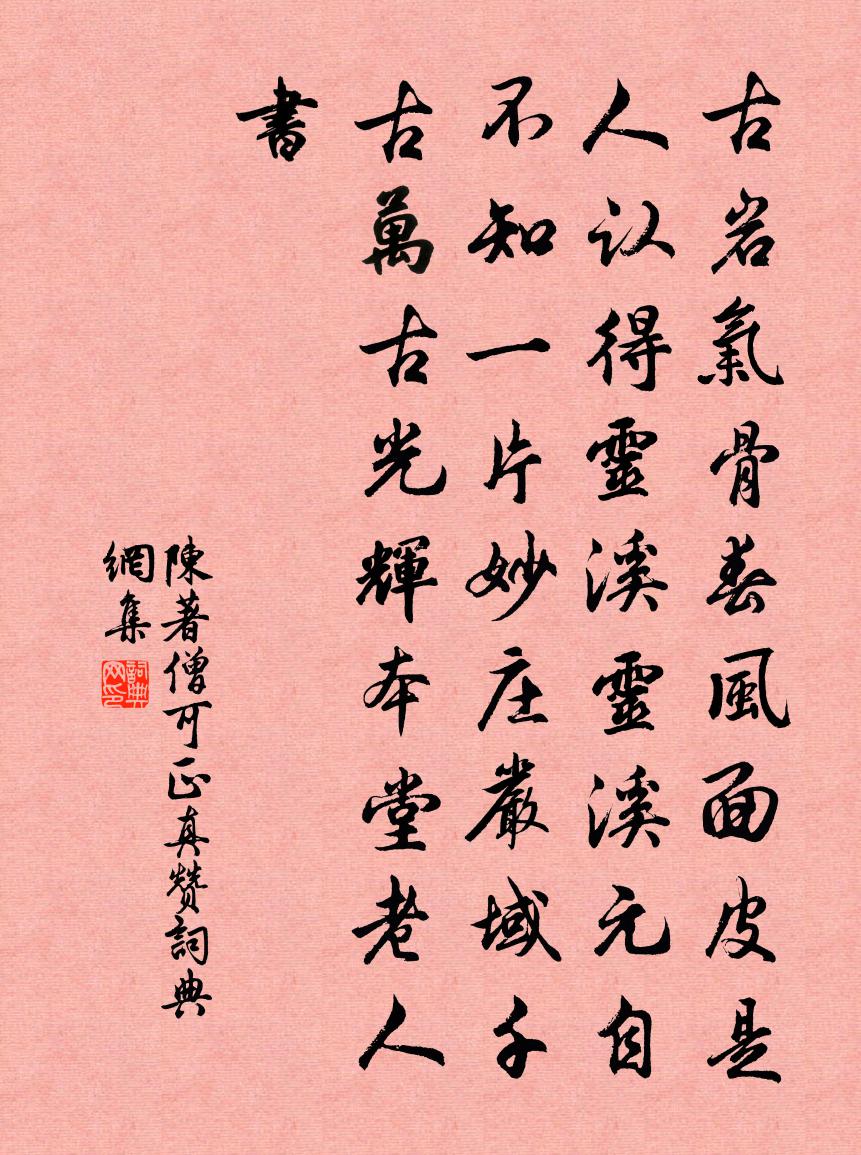 古岩氣骨春風面皮是
人认得靈溪靈溪元自
不知一片妙庄嚴域千
古萬古光輝本堂老人
書
陳著僧可正真赞詞典
網集
詞典网印